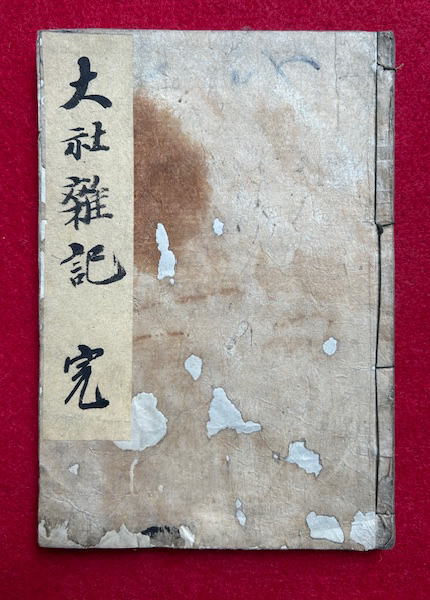 大社雜記 完